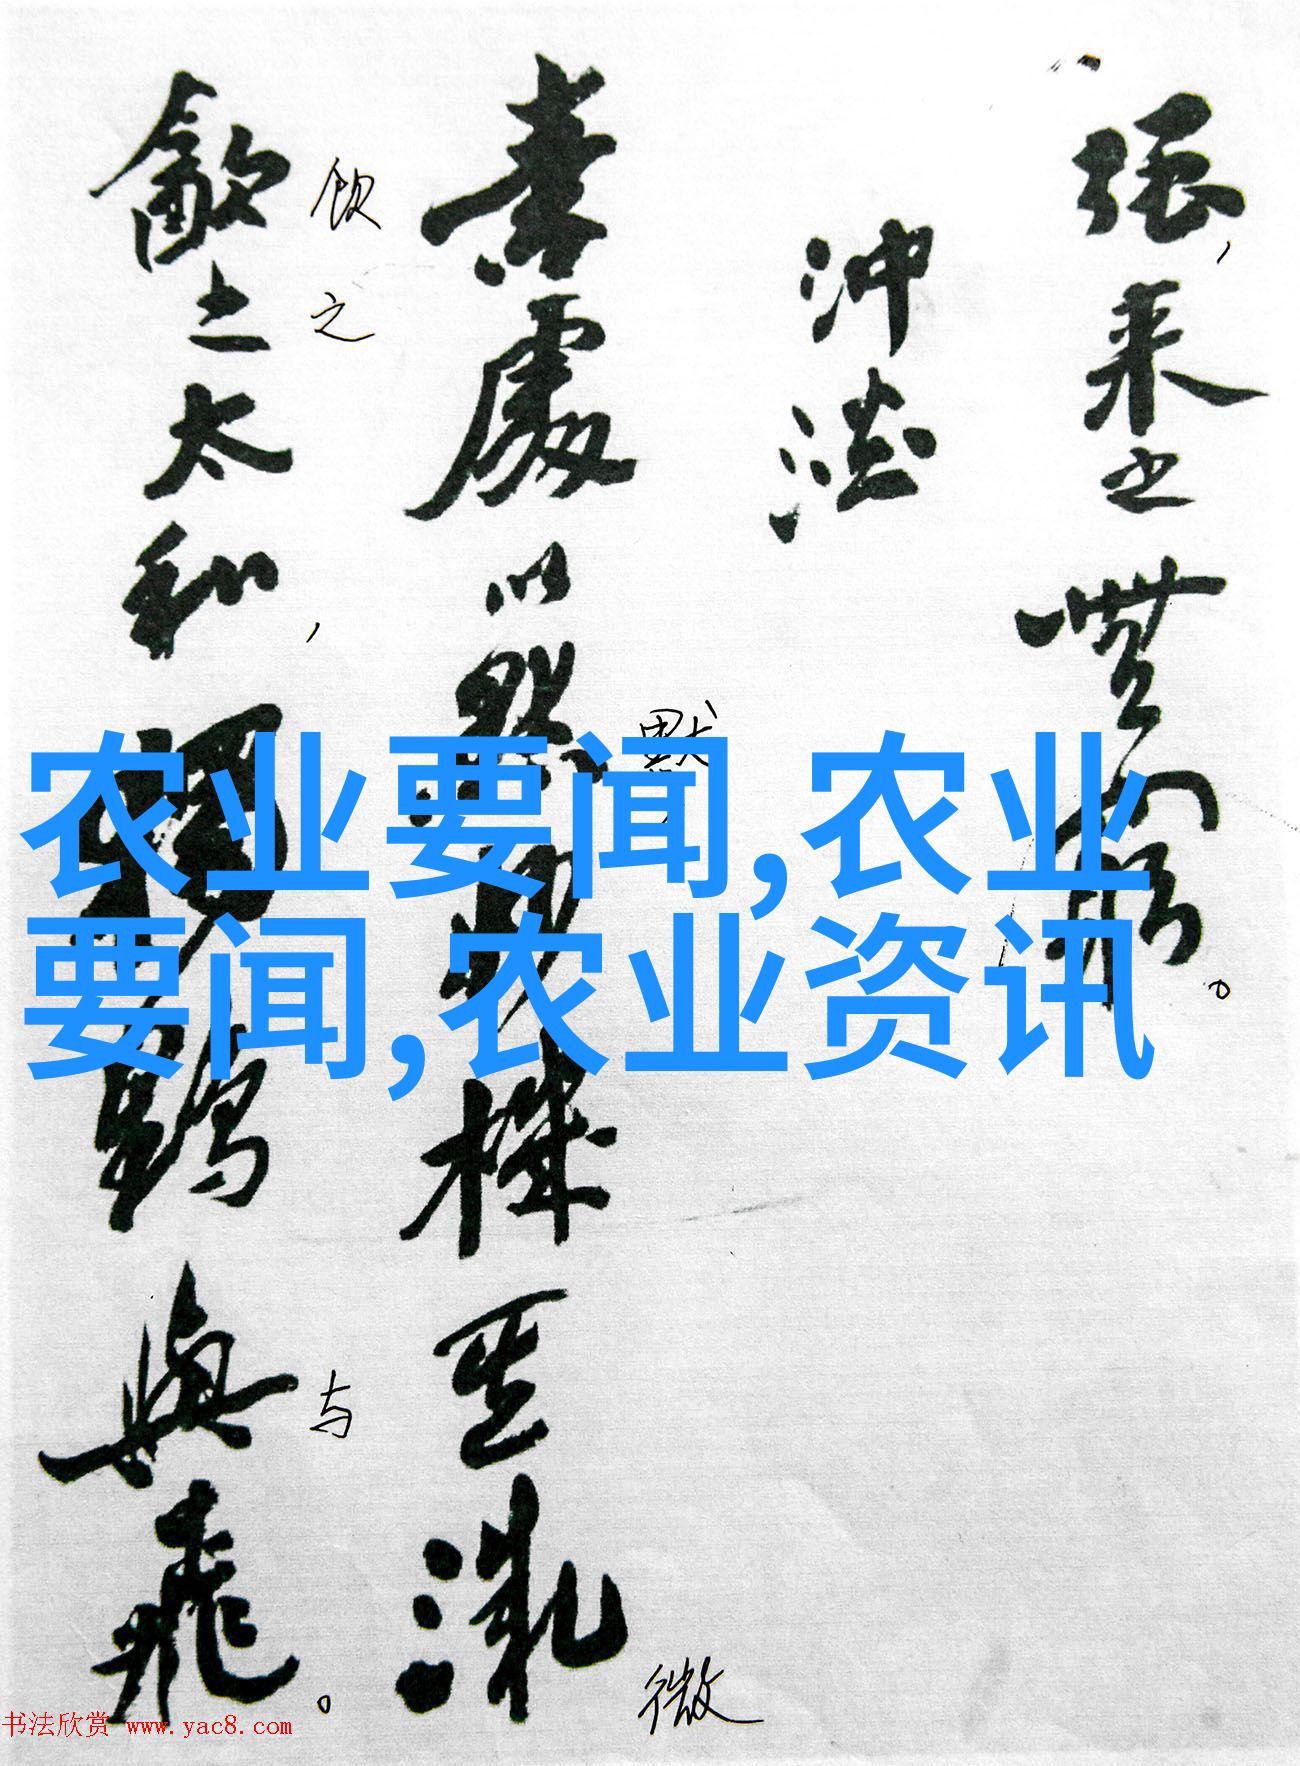 强,来之無窮。
沖澹
素處以默妙機其微
默
微
飲之太和,獨鶴與飛。
饮之
与
农业要闻,农业
要闻,农业资讯
书法欣赏 www.yac8.com